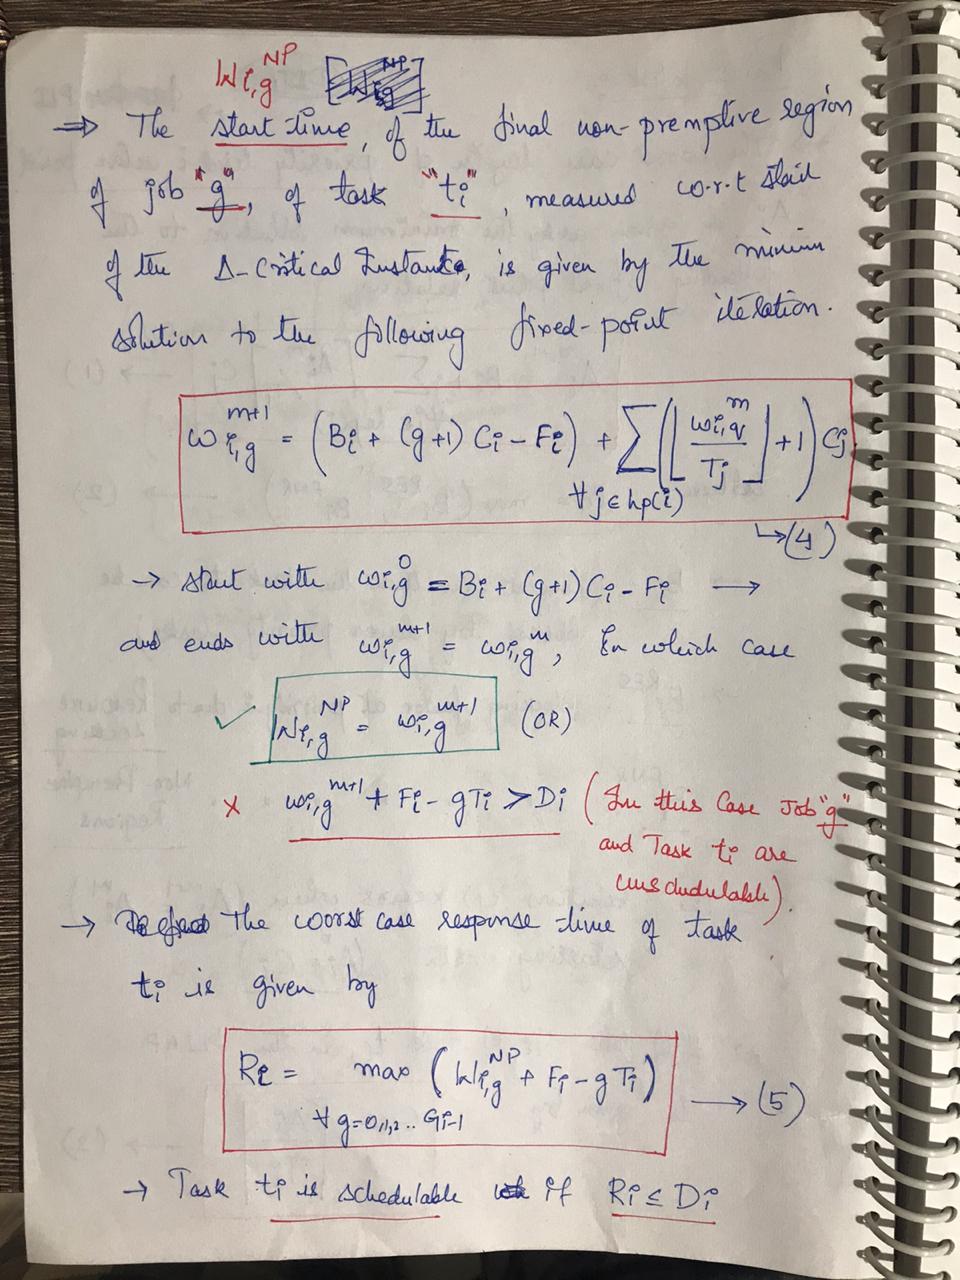 Wi,g^NP
⇒ The start time, of the final non-premptive region
of job "g", of task "ti", measured w.r.t start
of the Δ-Critical Instante, is given by the minimun
solution to the following fixed-point iteration.
ω i,g^m+1 = (Bi + (g+1) Ci - Fi) + ∑ ∀j∈hp(i) (⌊ωi,g^m / Tj⌋ + 1) Cj
↳(4)
→ start with ωi,g^0 = Bi + (g+1) Ci - Fi →
and ends with ωi,g^m+1 = ωi,g^m, In which case
✓ Wi,g^NP = ωi,g^m+1 (OR)
x ωi,g^m+1 + Fi - gTi > Di (In this Case Job "g"
and Task ti are
unschdulable).
→ The worst case response time of task
ti is given by
Ri = max ∀g=0,1,2..Gi-1 (Wi,g^NP + Fi - g Ti) → (5)
→ Task ti is schedulable if Ri ≤ Di